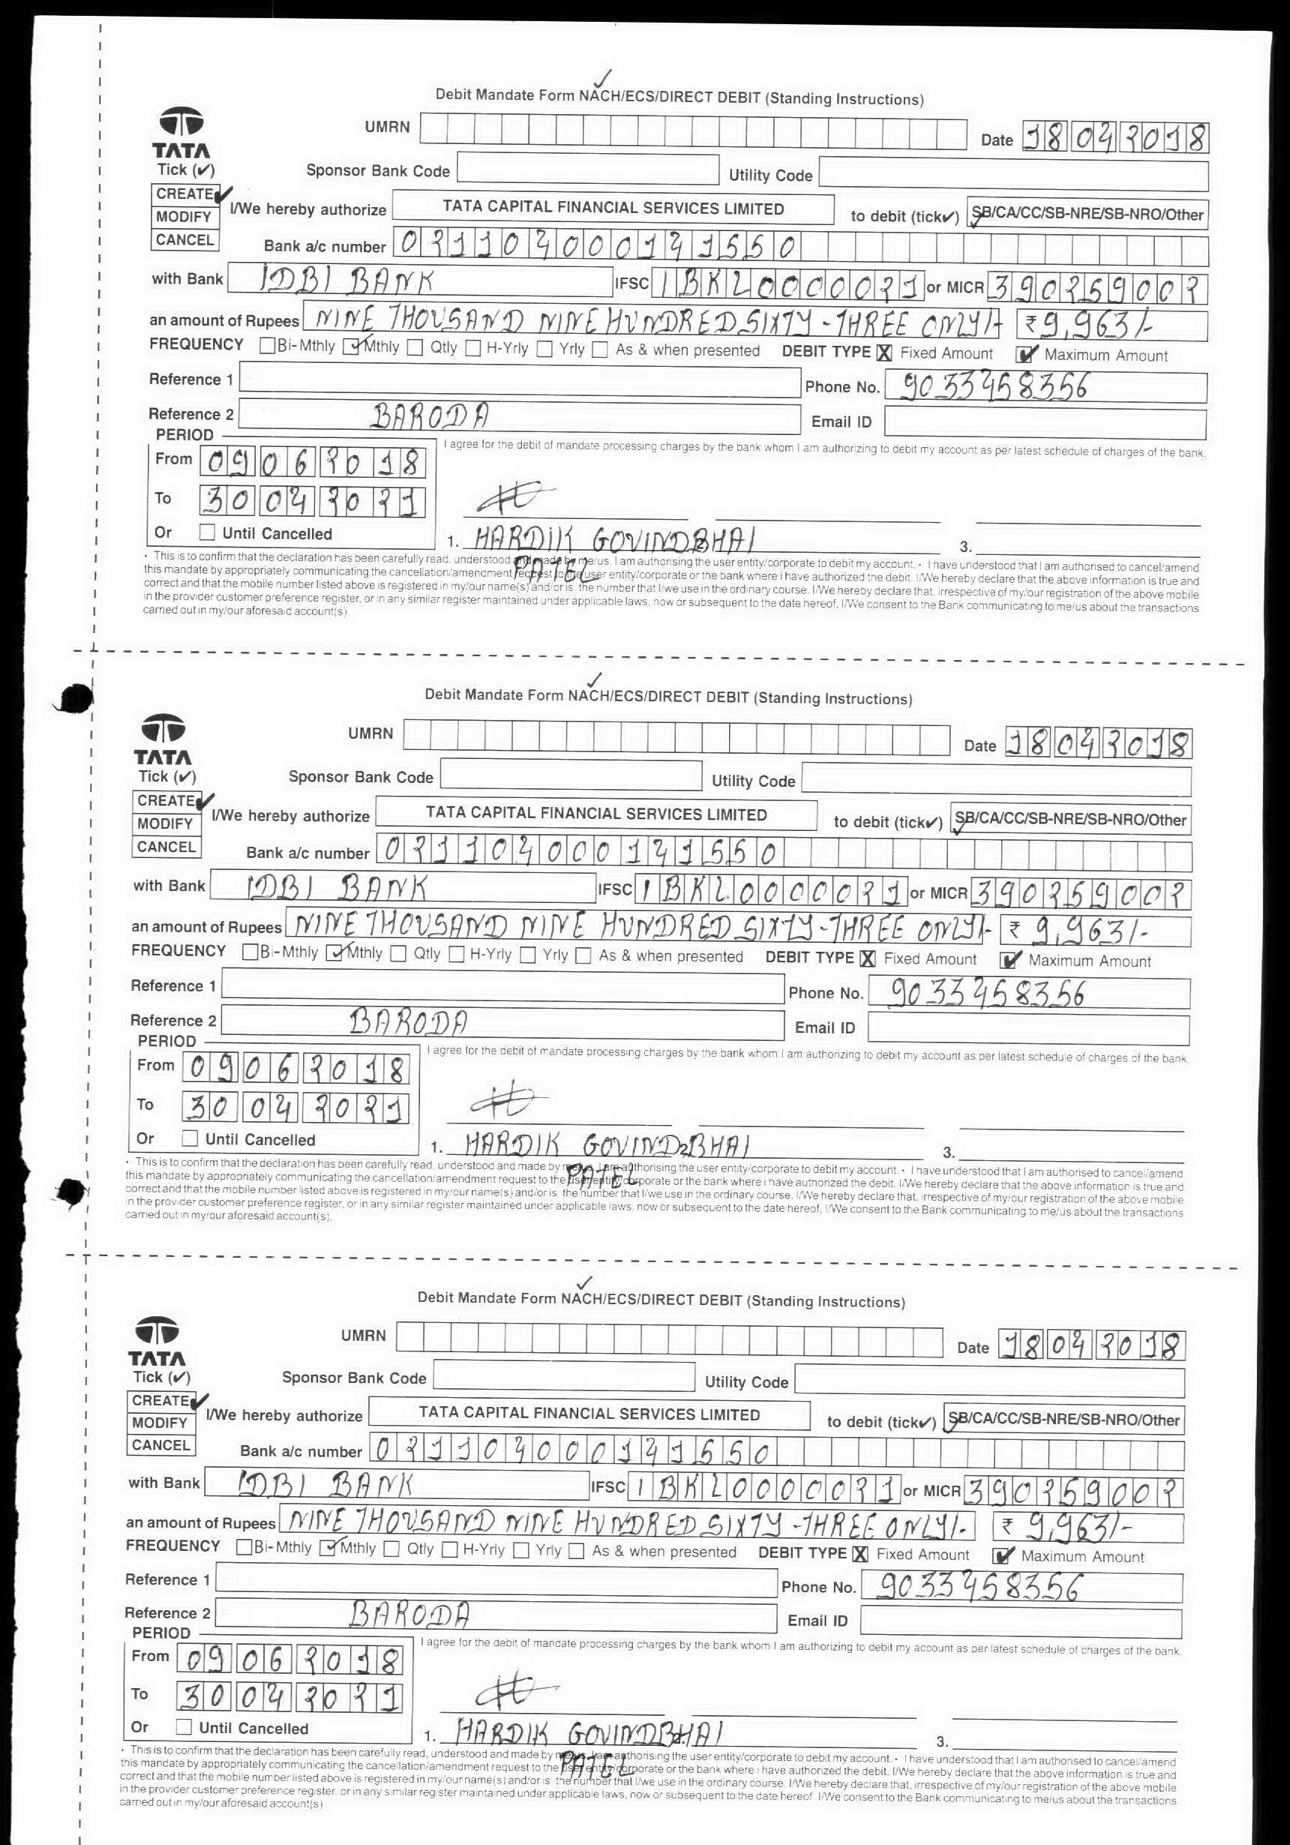 Debit Mandate Form NACH/ECS/DIRECT DEBIT (Standing Instructions)
TATA
UMRN
Date 18042018
Tick (✓)
Sponsor Bank Code
Utility Code
CREATE ✓
MODIFY
CANCEL
I/We hereby authorize TATA CAPITAL FINANCIAL SERVICES LIMITED to debit (tick✓) SB/CA/CC/SB-NRE/SB-NRO/Other
Bank a/c number 021104000141550
with Bank IDBI BANK IFSC IBKL0000021 or MICR 390259002
an amount of Rupees NINE THOUSAND NINE HUNDRED SIXTY-THREE ONLY/- ₹ 9,963/-
FREQUENCY Bi-Mthly ✓ Mthly Qtly H-Yrly Yrly As & when presented DEBIT TYPE X Fixed Amount ✓ Maximum Amount
Reference 1
Phone No. 9033458356
Reference 2 BARODA
Email ID
PERIOD
I agree for the debit of mandate processing charges by the bank whom I am authorizing to debit my account as per latest schedule of charges of the bank.
From 09062018
To 30042021
Or Until Cancelled
1. HARDIK GOVINDBHAI
PATEL
2.
3.
• This is to confirm that the declaration has been carefully read, understood and made by me/us. I am authorising the user entity/corporate to debit my account. • I have understood that I am authorised to cancel/amend
this mandate by appropriately communicating the cancellation/amendment request to the user entity/corporate or the bank where i have authorized the debit. I/We hereby declare that the above information is true and
correct and that the mobile number listed above is registered in my/our name(s) and/or is the number that I/we use in the ordinary course. I/We hereby declare that, irrespective of my/our registration of the above mobile
in the provider customer preference register, or in any similar register maintained under applicable laws, now or subsequent to the date hereof, I/We consent to the Bank communicating to me/us about the transactions
carried out in my/our aforesaid account(s).
Debit Mandate Form NACH/ECS/DIRECT DEBIT (Standing Instructions)
TATA
UMRN
Date 18042018
Tick (✓)
Sponsor Bank Code
Utility Code
CREATE ✓
MODIFY
CANCEL
I/We hereby authorize TATA CAPITAL FINANCIAL SERVICES LIMITED to debit (tick✓) SB/CA/CC/SB-NRE/SB-NRO/Other
Bank a/c number 021104000141550
with Bank IDBI BANK IFSC IBKL0000021 or MICR 390259002
an amount of Rupees NINE THOUSAND NINE HUNDRED SIXTY-THREE ONLY/- ₹ 9,963/-
FREQUENCY Bi-Mthly ✓ Mthly Qtly H-Yrly Yrly As & when presented DEBIT TYPE X Fixed Amount ✓ Maximum Amount
Reference 1
Phone No. 9033458356
Reference 2 BARODA
Email ID
PERIOD
I agree for the debit of mandate processing charges by the bank whom I am authorizing to debit my account as per latest schedule of charges of the bank.
From 09062018
To 30042021
Or Until Cancelled
1. HARDIK GOVINDBHAI
PATEL
2.
3.
• This is to confirm that the declaration has been carefully read, understood and made by me/us. I am authorising the user entity/corporate to debit my account. • I have understood that I am authorised to cancel/amend
this mandate by appropriately communicating the cancellation/amendment request to the user entity/corporate or the bank where i have authorized the debit. I/We hereby declare that the above information is true and
correct and that the mobile number listed above is registered in my/our name(s) and/or is the number that I/we use in the ordinary course. I/We hereby declare that, irrespective of my/our registration of the above mobile
in the provider customer preference register, or in any similar register maintained under applicable laws, now or subsequent to the date hereof, I/We consent to the Bank communicating to me/us about the transactions
carried out in my/our aforesaid account(s).
Debit Mandate Form NACH/ECS/DIRECT DEBIT (Standing Instructions)
TATA
UMRN
Date 18042018
Tick (✓)
Sponsor Bank Code
Utility Code
CREATE ✓
MODIFY
CANCEL
I/We hereby authorize TATA CAPITAL FINANCIAL SERVICES LIMITED to debit (tick✓) SB/CA/CC/SB-NRE/SB-NRO/Other
Bank a/c number 021104000141550
with Bank IDBI BANK IFSC IBKL0000021 or MICR 390259002
an amount of Rupees NINE THOUSAND NINE HUNDRED SIXTY-THREE ONLY/- ₹ 9,963/-
FREQUENCY Bi-Mthly ✓ Mthly Qtly H-Yrly Yrly As & when presented DEBIT TYPE X Fixed Amount ✓ Maximum Amount
Reference 1
Phone No. 9033458356
Reference 2 BARODA
Email ID
PERIOD
I agree for the debit of mandate processing charges by the bank whom I am authorizing to debit my account as per latest schedule of charges of the bank.
From 09062018
To 30042021
Or Until Cancelled
1. HARDIK GOVINDBHAI
PATEL
2.
3.
• This is to confirm that the declaration has been carefully read, understood and made by me/us. I am authorising the user entity/corporate to debit my account. • I have understood that I am authorised to cancel/amend
this mandate by appropriately communicating the cancellation/amendment request to the user entity/corporate or the bank where i have authorized the debit. I/We hereby declare that the above information is true and
correct and that the mobile number listed above is registered in my/our name(s) and/or is the number that I/we use in the ordinary course. I/We hereby declare that, irrespective of my/our registration of the above mobile
in the provider customer preference register, or in any similar register maintained under applicable laws, now or subsequent to the date hereof, I/We consent to the Bank communicating to me/us about the transactions
carried out in my/our aforesaid account(s)